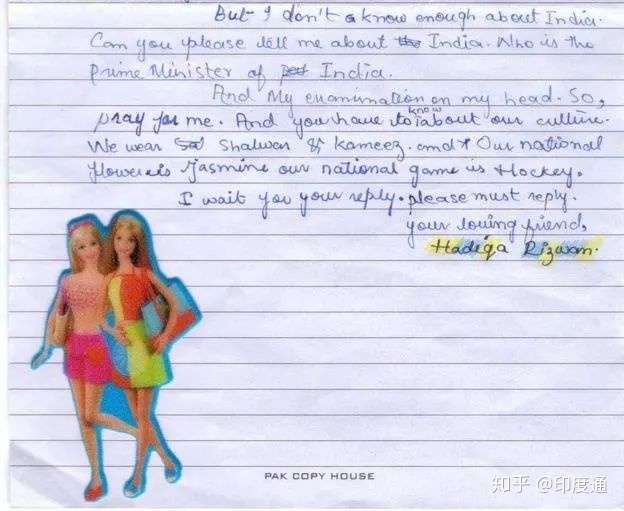 But I don't know enough about India.
Can you please tell me about the India. Who is the
Prime Minister of India.
And My examination on my head. So,
pray for me. And you have to know about our culture.
We wear Shalwar & Kameez. and Our national
flower is Jasmine our national game is Hockey.
I wait you your reply. please must reply.
your loving friend,
Hadiqa Rizwan.
PAK COPY HOUSE
知乎 @印度通